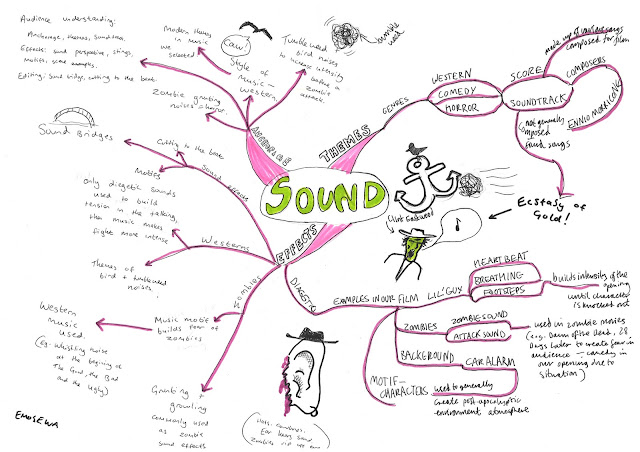 Audience understanding:
Anchorage, themes, soundtrack.
Effects: sound perspective, stings,
motifs, score
Editing: sound bridge, cutting to the beat.
Modern themes
in music
we
selected
Caw!
Style of
Music -
western.
Tumbleweed
or
bird noises
to increase intensity
before a
zombie
attack.
tumble
weed
Zombie grunting
noises = horror.
AUDIENCE
THEMES
GENRES
WESTERN
COMEDY
HORROR
SCORE
made up of
composed for film
SOUNDTRACK
COMPOSERS
ENNIO MORRICONE
not generally
composed
found songs
Ecstasy of
Gold!
SOUND
Clint Eastwood
Sound Bridges
Cutting to the beat
Motifs
Sound effects
only diegetic sounds
used to build
tension in the talking,
then music makes
fight more intense
Westerns
Themes of
bird + tumbleweed
noises
EFFECTS
Zombies
Western
music
used.
(eg. Whistling noise
at the beginning of
The Good, the Bad
and the Ugly)
Music motif
builds fear of
zombies
Grunting +
growling
commonly used
as zombie
sound effects
DIAGETIC
EXAMPLES IN OUR FILM
LIL' GUY
HEARTBEAT
BREATHING
FOOTSTEPS
builds intensity of the
opening
until character
is knocked out
ZOMBIES
ZOMBIE SOUND
ATTACK SOUND
used in zombie movies
(e.g. Dawn of the Dead, 28
Days Later to create fear in
audience - comedy in
our opening due to
situation)
BACKGROUND
CAR ALARM
MOTIF-
CHARACTERS
used to generally
create post-apocalyptic
environment atmosphere
EMOSEWA